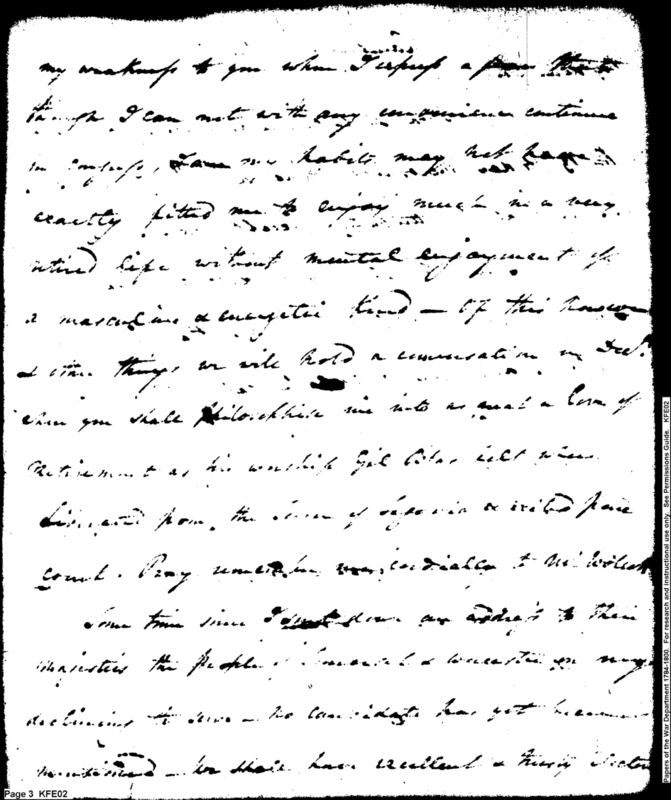 my weakness to you when I express a fear that
though I can not with any convenience continue
in congress, my habits may not have
exactly fitted me to enjoy much in a very
retired life without mental enjoyment of
a masculine & energetic kind — Of this however
& other things we will hold a conversation in Decr.
when you shall philosophise me into as great a love of
retirement as his worship Gil Blas felt when
liberated from the tower of Segovia & exiled from
court. Pray remember cordially to Mr Wolcott
Some time since I sent down an address to their
majesties the People of Somerset & Worcester on my
declining to serve — no candidate has yet been
mentioned — we shall have excellent & trusty
Page 3 KFE02
Papers of the War Department 1784-1800. For research and instructional use only. See Permissions Guide. KFE02